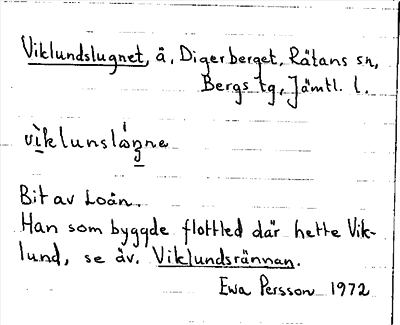 Viklundslugnet, å, Digerberget, Rätans sn,
Bergs tg, Jämtl. l.
vìklunslóŋne
Bit av Loån.
Han som byggde flottled där hette Vik-
lund, se äv. Viklundsrännan.
Ewa Persson 1972